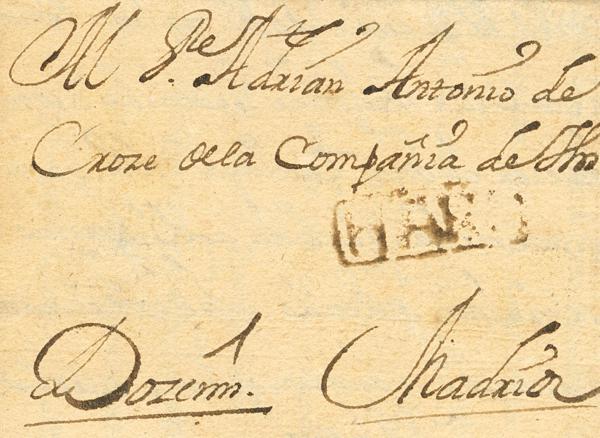 M Pe. Adrian Antonio de
Croze de la Compañia de Jhs
HARO
Madrid